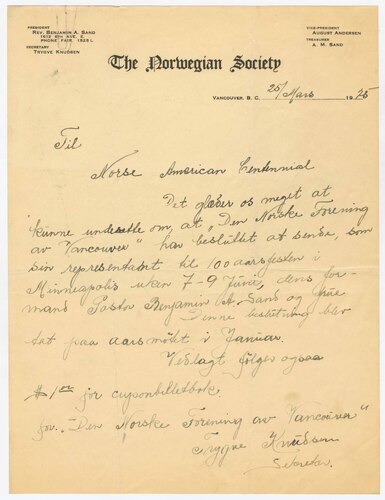 PRESIDENT
REV. BENJAMIN A. SAND
1612 8TH AVE. E.
PHONE FAIR. 1928 L
SECRETARY
TRYGVE KNUDSEN
VICE-PRESIDENT
AUGUST ANDERSEN
TREASURER
A. M. SAND
The Norwegian Society
VANCOUVER, B. C. 25/Mars 1925
Til
Norse American Centennial
Det glæder os meget at
kunne underette om, at „Den Norske Forening
av Vancouver" har besluttet at sende, som
sin representant til 100 aarsfesten i
Minneapolis uken 7-9 Juni, dens for-
mand Pastor Benjamin A. Sand og frue
Denne beslutning blev
tat paa aarsmötet i Januar.
Vedlagt følges ogsaa
$1 00 for cuponbilletbok
for „Den Norske Forening av Vancouver"
Trygve Knudsen
Sekretær.